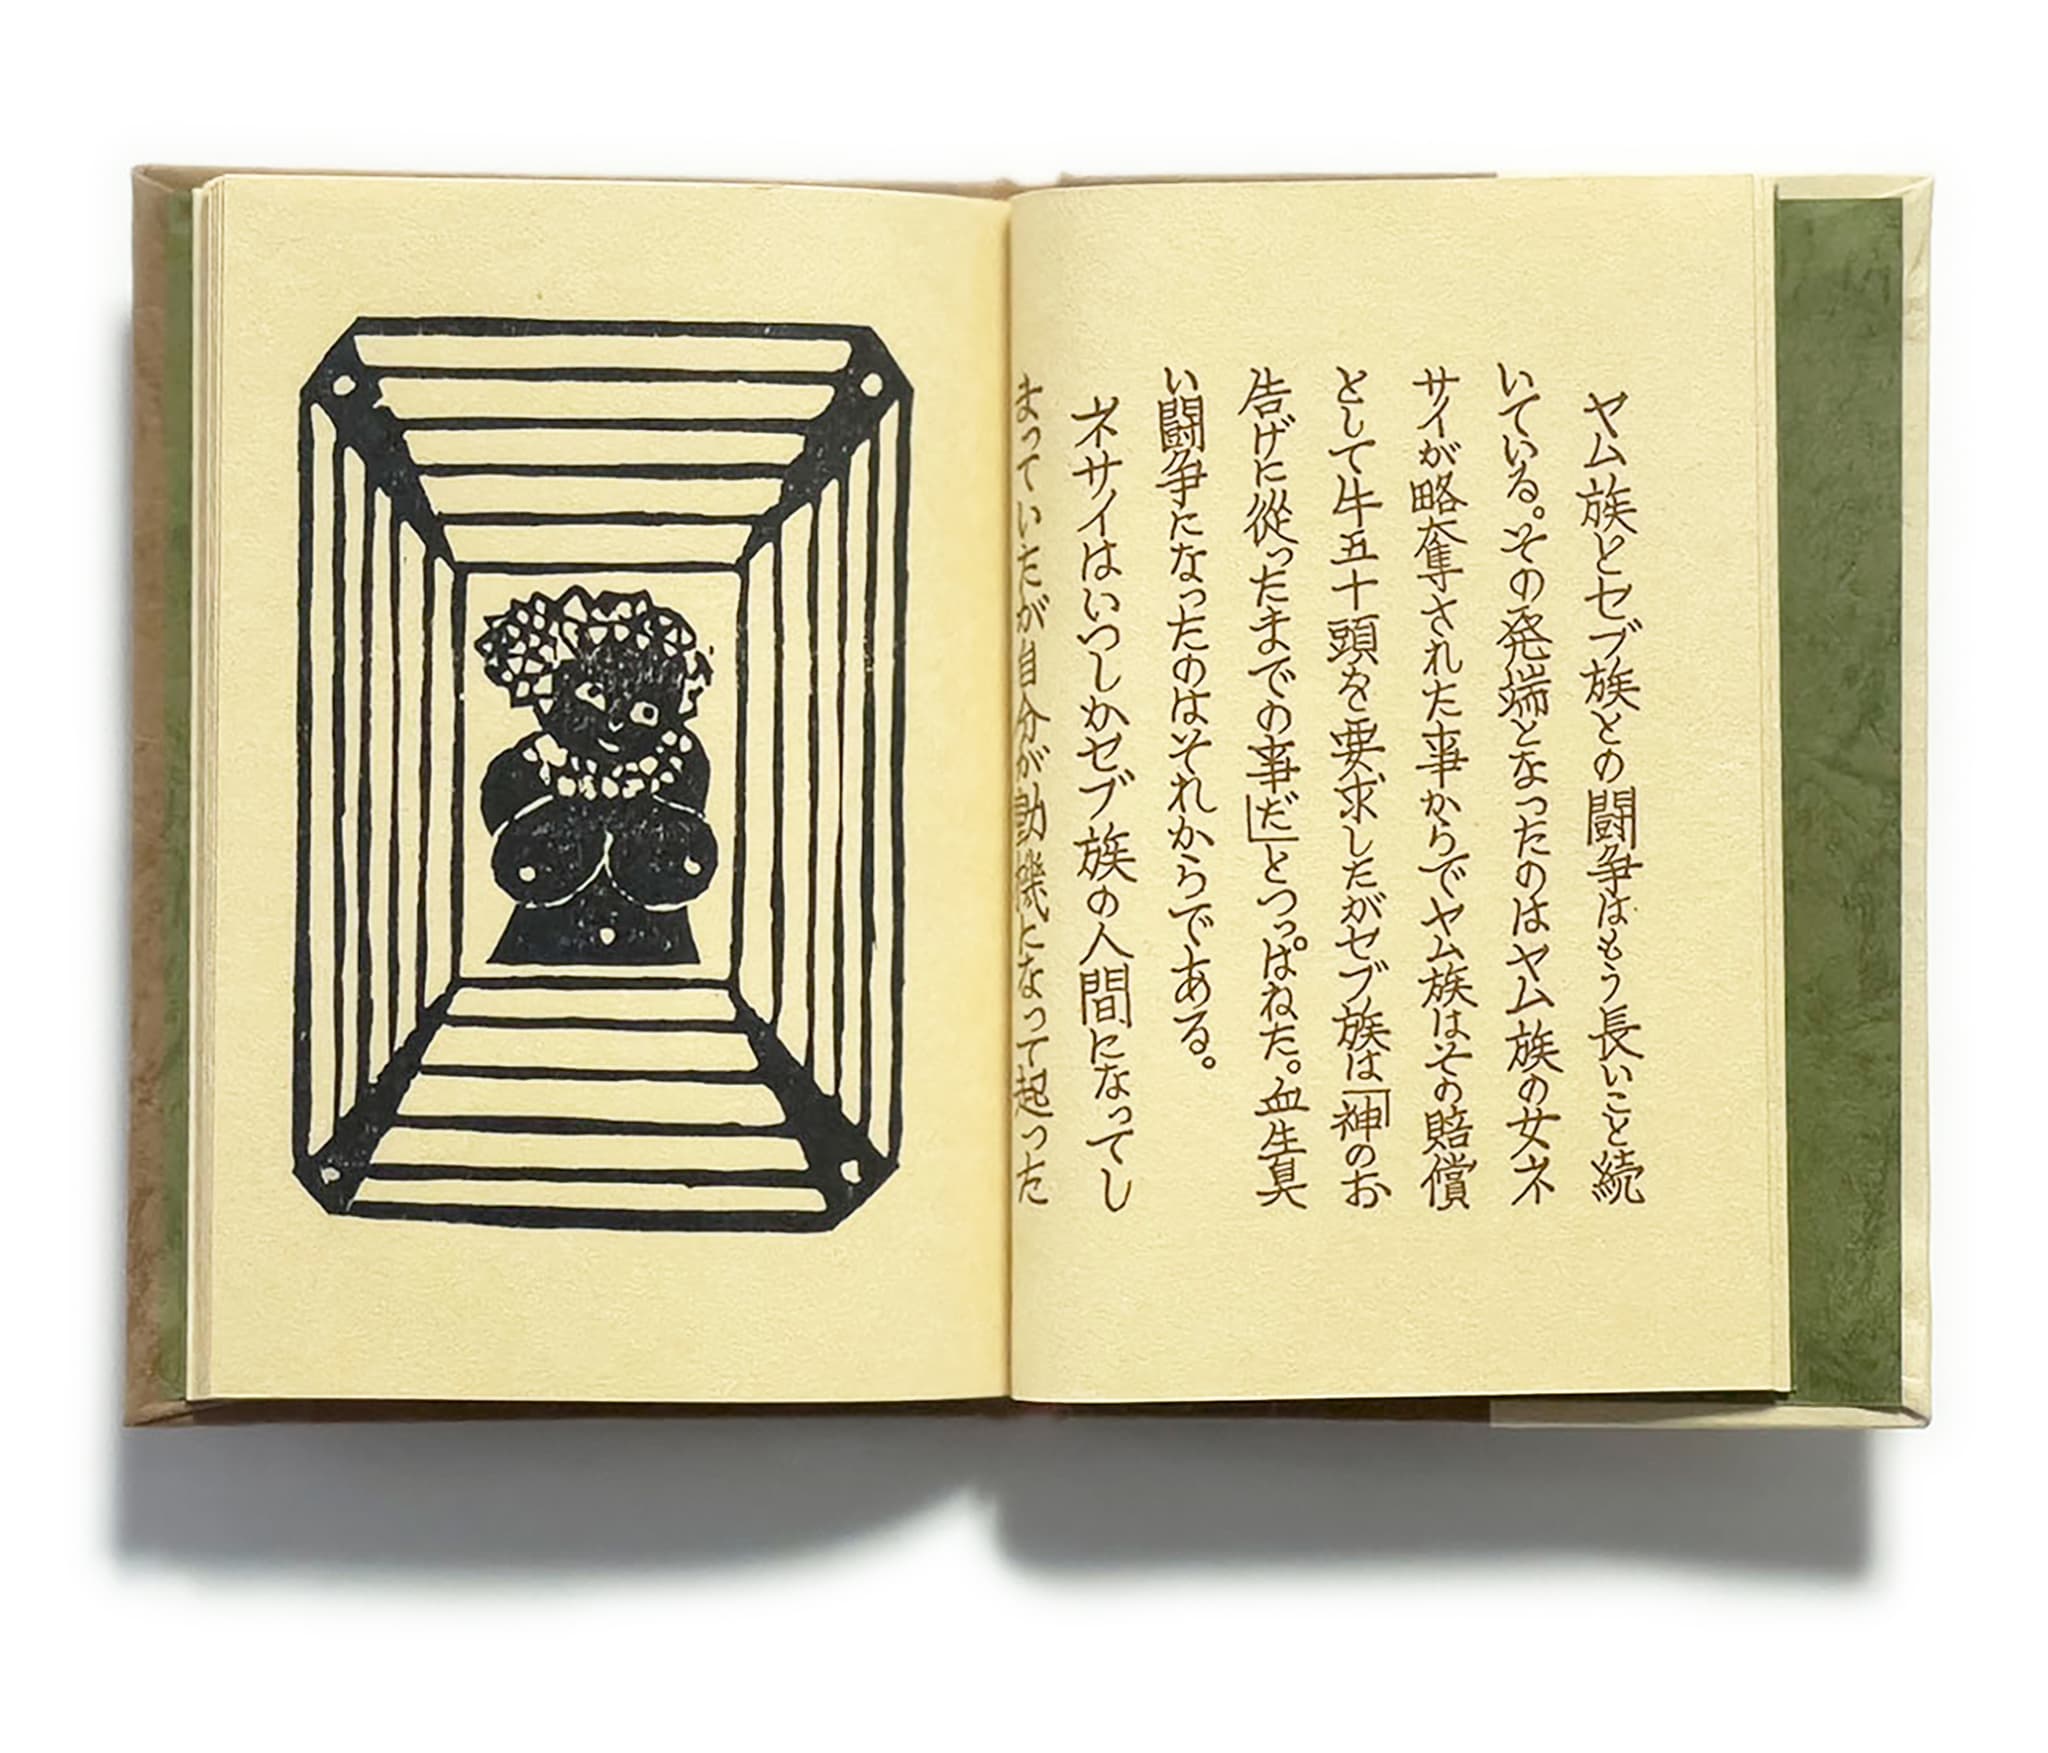 ヤム族とセブ族との闘争はもう長いこと続
いている。その発端となったのはヤム族の女ネ
サイが略奪された事からでヤム族はその賠償
として牛五十頭を要求したがセブ族は「神のお
告げに從ったまでの事だ」とつっぱねた。血生臭
い闘争になったのはそれからである。
ネサイはいつしかセブ族の人間になってし
まっていたが自分が動機になって起った